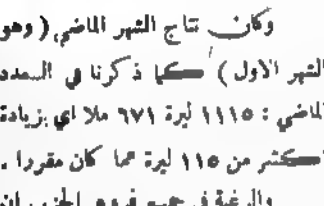 وكان نتاج الشهر الماضي ( وهو
الشهر الاول ) كما ذكرنا في العدد
الماضي : ١١١٥ ليرة ٦٧١ ملا اي بزيادة
اكثر من ١١٥ ليرة مما كان مقررا .
والرغبة في جميع فروع الحزب ان